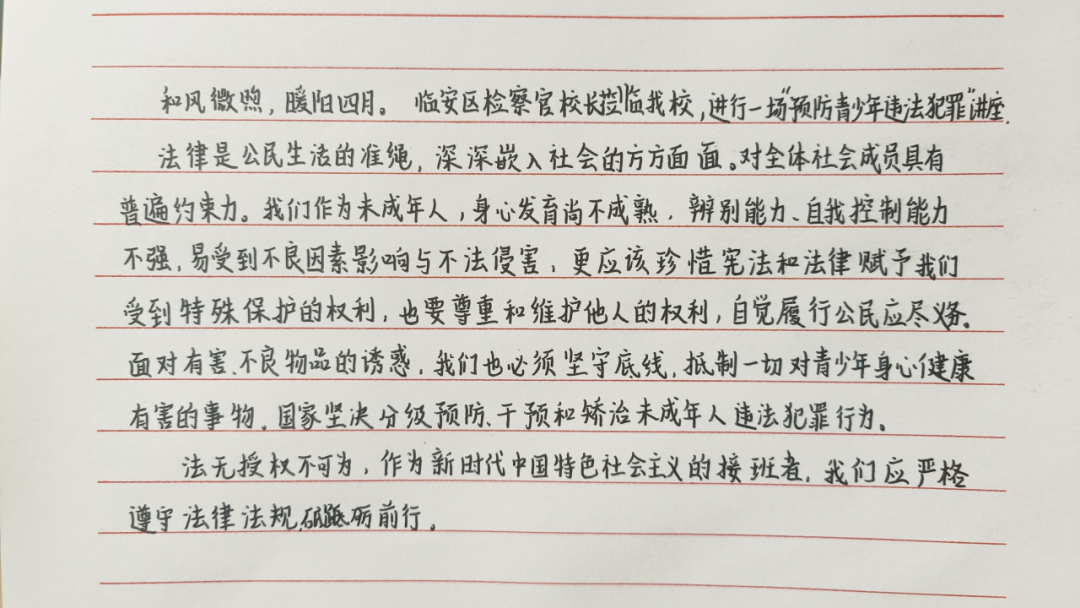 和风微煦，暖阳四月。临安区检察官校长莅临我校，进行一场“预防青少年违法犯罪”讲座。
法律是公民生活的准绳，深深嵌入社会的方方面面。对全体社会成员具有
普遍约束力。我们作为未成年人，身心发育尚不成熟，辨别能力、自我控制能力
不强，易受到不良因素影响与不法侵害，更应该珍惜宪法和法律赋予我们
受到特殊保护的权利，也要尊重和维护他人的权利，自觉履行公民应尽义务。
面对有害、不良物品的诱惑，我们也必须坚守底线，抵制一切对青少年身心健康
有害的事物。国家坚决分级预防、干预和矫治未成年人违法犯罪行为。
法无授权不可为，作为新时代中国特色社会主义的接班者，我们应严格
遵守法律法规，砥砺前行。